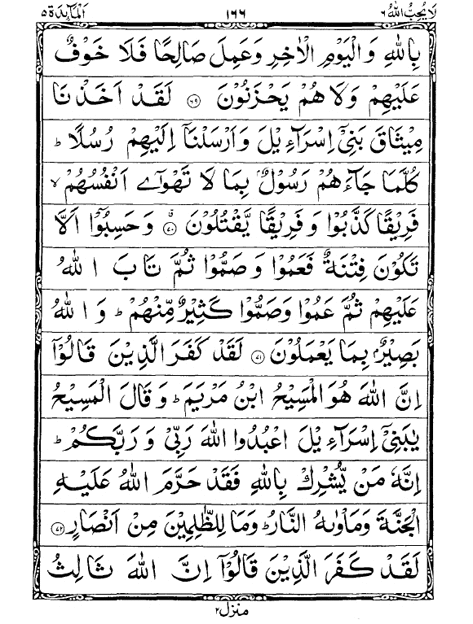 لَا يُحِبُّ اللهُ ٦ ١٦٦ اَلْمَآىِٕدَة ٥
بِاللهِ وَالْيَوْمِ الْاٰخِرِ وَعَمِلَ صَالِحًا فَلَا خَوْفٌ
عَلَيْهِمْ وَلَا هُمْ يَحْزَنُوْنَ ۝٦٩ لَقَدْ اَخَذْنَا
مِيْثَاقَ بَنِيْٓ اِسْرَآءِيْلَ وَاَرْسَلْنَآ اِلَيْهِمْ رُسُلًا ؕ
كُلَّمَا جَآءَهُمْ رَسُوْلٌۢ بِمَا لَا تَهْوٰٓى اَنْفُسُهُمْ ۙ
فَرِيْقًا كَذَّبُوْا وَفَرِيْقًا يَّقْتُلُوْنَ ۝٧٠ وَحَسِبُوْٓا اَلَّا
تَكُوْنَ فِتْنَةٌ فَعَمُوْا وَصَمُّوْا ثُمَّ تَابَ اللهُ
عَلَيْهِمْ ثُمَّ عَمُوْا وَصَمُّوْا كَثِيْرٌ مِّنْهُمْ ؕ وَاللهُ
بَصِيْرٌۢ بِمَا يَعْمَلُوْنَ ۝٧١ لَقَدْ كَفَرَ الَّذِيْنَ قَالُوْٓا
اِنَّ اللهَ هُوَ الْمَسِيْحُ ابْنُ مَرْيَمَ ؕ وَقَالَ الْمَسِيْحُ
يٰبَنِيْٓ اِسْرَآءِيْلَ اعْبُدُوا اللهَ رَبِّيْ وَرَبَّكُمْ ؕ
اِنَّهٗ مَنْ يُّشْرِكْ بِاللهِ فَقَدْ حَرَّمَ اللهُ عَلَيْهِ
الْجَنَّةَ وَمَاْوٰىهُ النَّارُ ؕ وَمَا لِلظّٰلِمِيْنَ مِنْ اَنْصَارٍ ۝٧٢
لَقَدْ كَفَرَ الَّذِيْنَ قَالُوْٓا اِنَّ اللهَ ثَالِثُ
منزل ٢